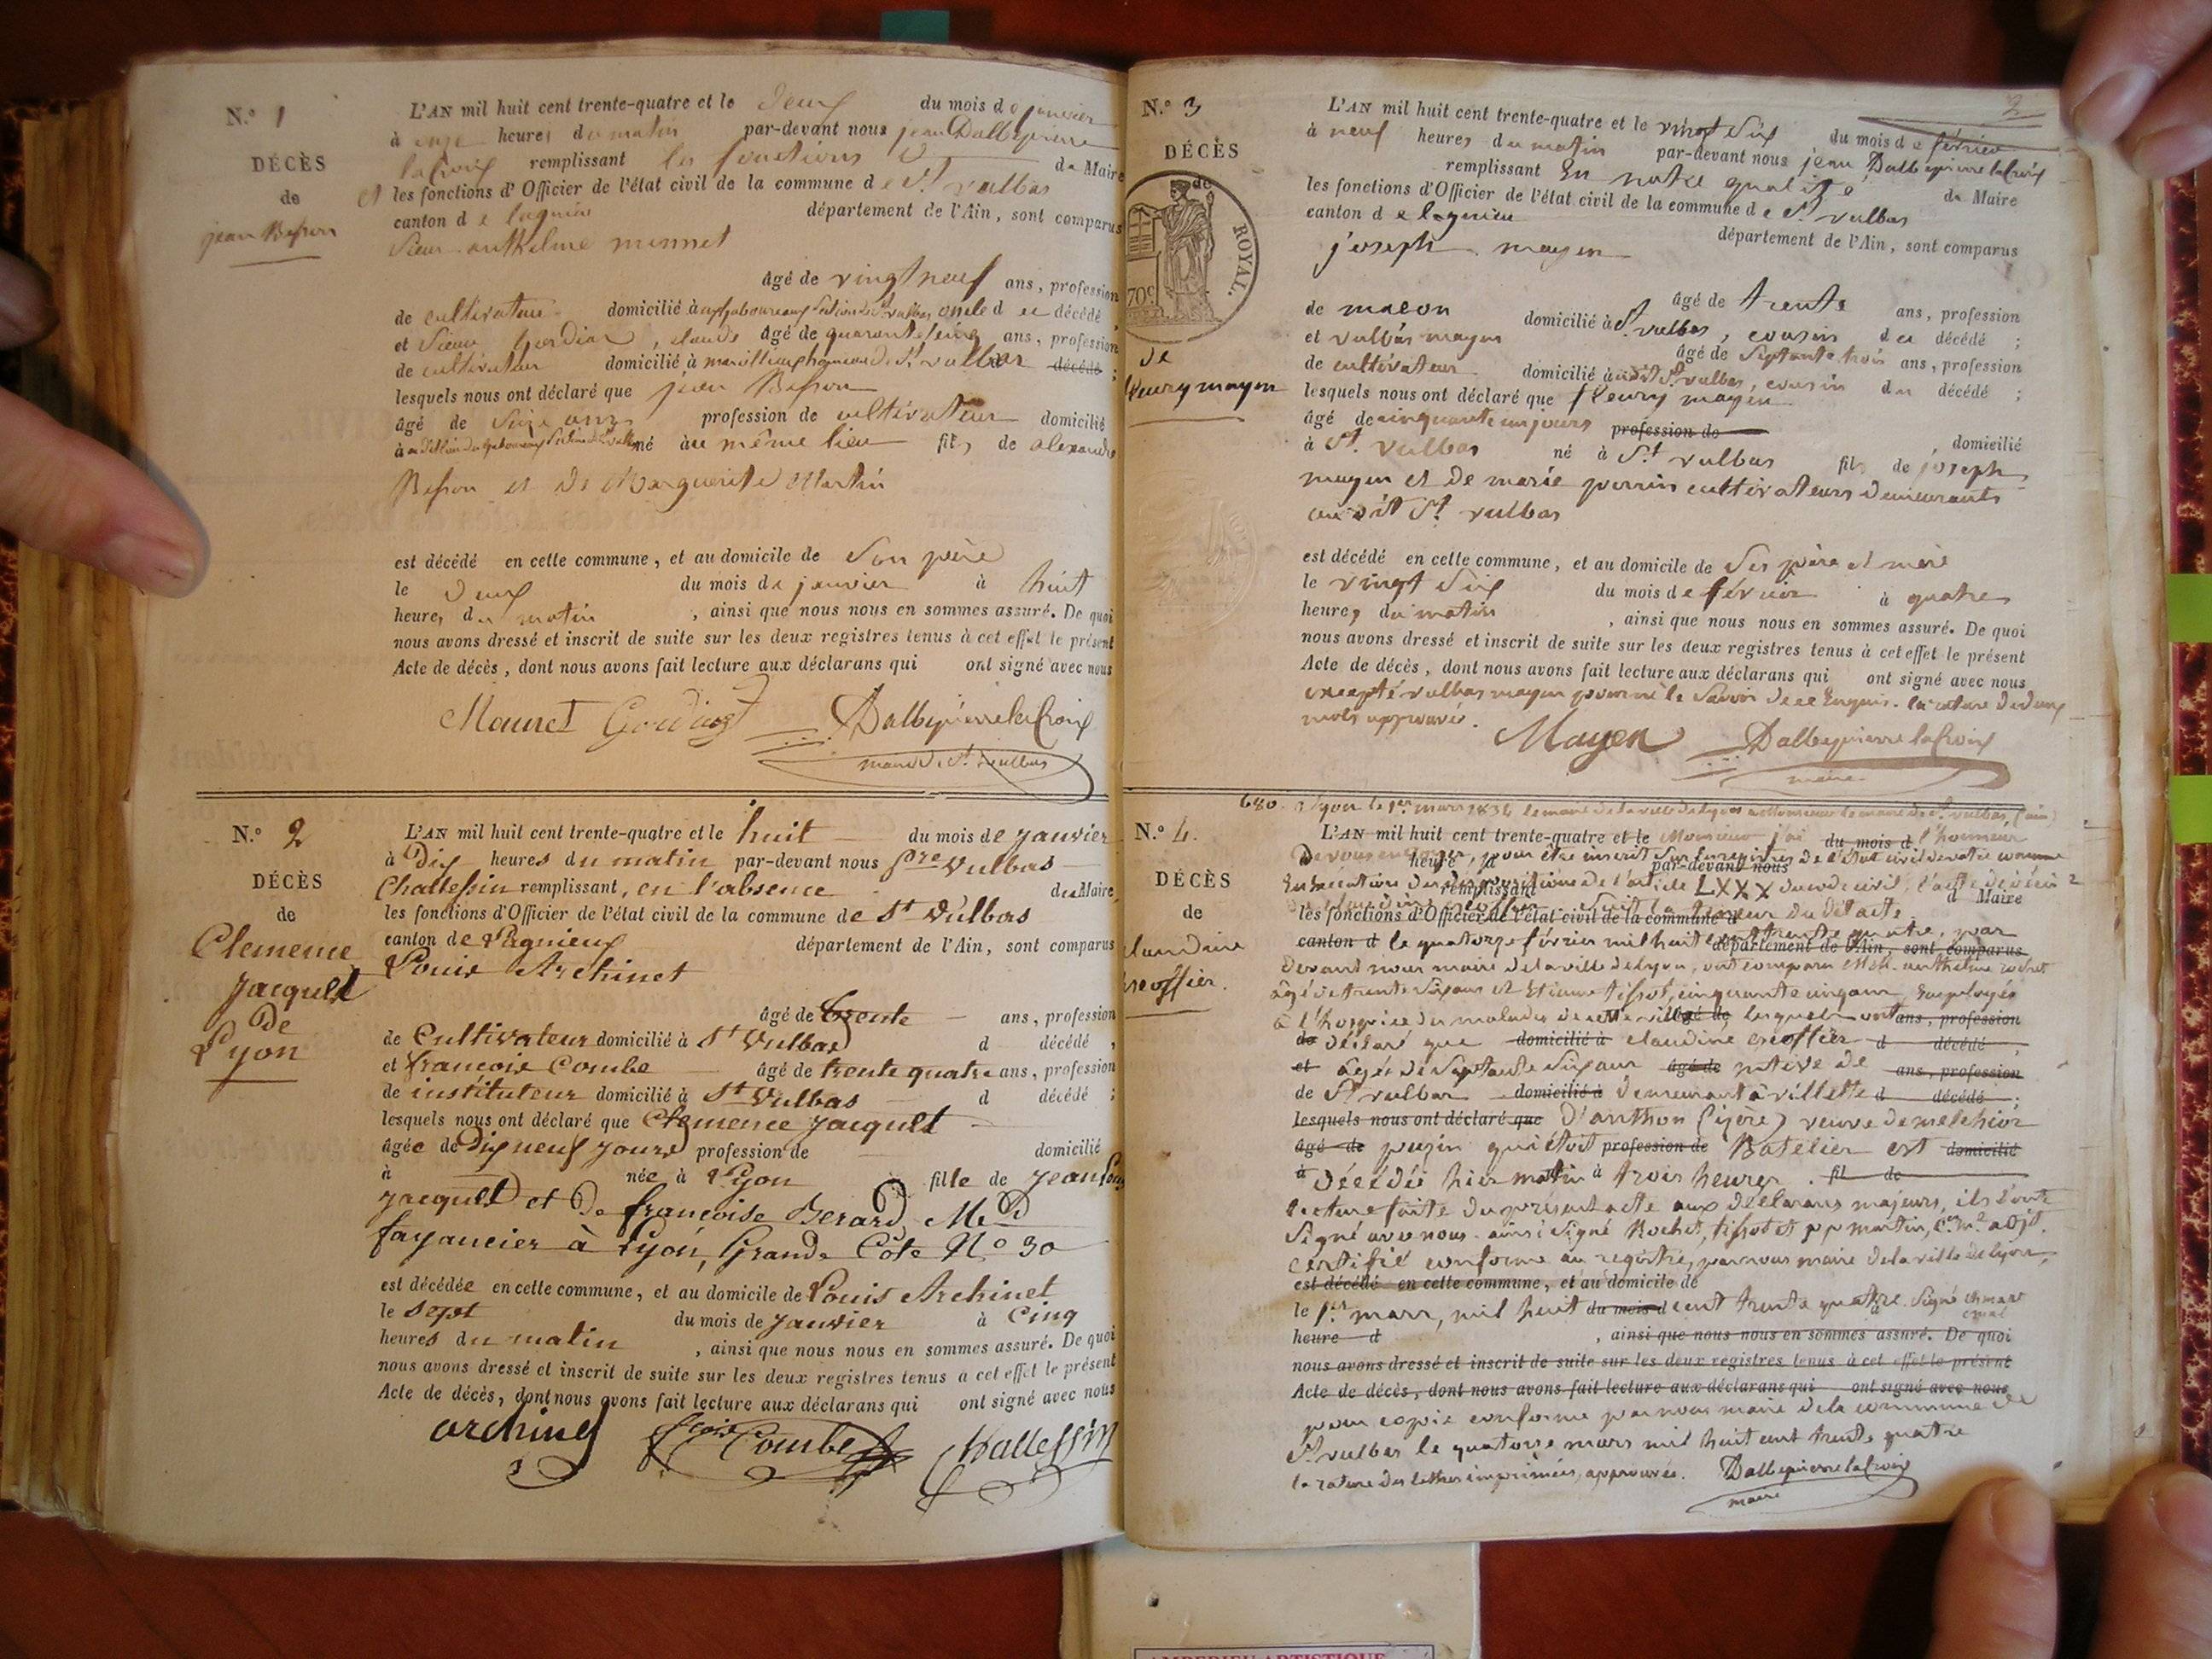 N.º 1
DÉCÈS
de
jean Besson
L'AN mil huit cent trente-quatre et le deux du mois de janvier
à onze heures du matin par-devant nous jean Dalbepierre
lacroix remplissant les fonctions de Maire
et les fonctions d'Officier de l'état civil de la commune de St. vulbas
canton de lagnieu département de l'Ain, sont comparus
Sieur anthelme monnet
âgé de vingt neuf ans, profession
de cultivateur domicilié à oncle du décédé,
et Sieur Gordiat, claude âgé de quarante cinq ans, profession
de cultivateur domicilié à hameau de St. vulbas décédé ;
lesquels nous ont déclaré que jean Besson
âgé de ans profession de cultivateur domicilié
à né au même lieu fils de alexandre
Besson et de Marguerite Martin
est décédé en cette commune, et au domicile de Son père
le deux du mois de janvier à huit
heures du matin, ainsi que nous nous en sommes assuré. De quoi
nous avons dressé et inscrit de suite sur les deux registres tenus à cet effet le présent
Acte de décès, dont nous avons fait lecture aux déclarans qui ont signé avec nous
Monnet Gordiat Dalbepierre lacroix
maire de St. vulbas
N.º 2
DÉCÈS
de
Clemence
Jacquet
De
Lyon
L'AN mil huit cent trente-quatre et le huit du mois de janvier
à Dix heures du matin par-devant nous pre Vulbas
Challessin remplissant, en l'absence du Maire,
les fonctions d'Officier de l'état civil de la commune de St Vulbas
canton de Lagnieux département de l'Ain, sont comparus
Louis Archinet
âgé de trente ans, profession
de Cultivateur domicilié à St Vulbas d décédé,
et françois Combe âgé de trente quatre ans, profession
de instituteur domicilié à St Vulbas d décédé ;
lesquels nous ont déclaré que Clemence Jacquet
âgée de Dix neuf jours profession de domicilié
à née à Lyon fille de Jean
Jacquet et De françoise Berard, Md
fayancier à Lyon, Grande Côte No 30
est décédée en cette commune, et au domicile de Louis Archinet
le sept du mois de janvier à Cinq
heures du matin, ainsi que nous nous en sommes assuré. De quoi
nous avons dressé et inscrit de suite sur les deux registres tenus à cet effet le présent
Acte de décès, dont nous avons fait lecture aux déclarans qui ont signé avec nous
archinet Combe Challessin
2
N.º 3
DÉCÈS
de
ROYAL.
70c
de
fleury mayen
L'AN mil huit cent trente-quatre et le vingt six du mois de février
à neuf heures du matin par-devant nous jean Dalbepierre lacroix
remplissant En notre qualité de Maire
les fonctions d'Officier de l'état civil de la commune de St. vulbas
canton de lagnieu département de l'Ain, sont comparus
joseph mayen
âgé de trente ans, profession
de macon domicilié à St. vulbas, cousin du décédé ;
et vulbas mayen âgé de Septante trois ans, profession
de cultivateur domicilié audit St. vulbas, cousin du décédé ;
lesquels nous ont déclaré que fleury mayen
âgé de cinquante un jours profession de, domicilié
à St. vulbas né à St. vulbas fils de joseph
mayen et de marie perrin cultivateurs demeurants
au dit St. vulbas
est décédé en cette commune, et au domicile de Ses père et mère
le vingt Six du mois de février à quatre
heures du matin, ainsi que nous nous en sommes assuré. De quoi
nous avons dressé et inscrit de suite sur les deux registres tenus à cet effet le présent
Acte de décès, dont nous avons fait lecture aux déclarans qui ont signé avec nous
excepté vulbas mayen pour ne le Savoir de ce Enquis. la rature de deux
mots approuvée.
Mayen Dalbepierre lacroix
maire
680. Lyon le 1er mars 1834 le maire de la ville de Lyon a Monsieur le maire de St. vulbas, (ain)
N.º 4.
DÉCÈS
de
claudine
excoffier.
L'AN mil huit cent trente-quatre et le Monsieur j'ai du mois d l'honneur
de vous envoyer, heure d pour être inscrit Sur les registres par-devant nous de l'état civil de votre commune
En Exécution des dispositions remplissant de l'article LXXX du code civil, l'acte de décès d Maire
les fonctions d'Officier de l'état civil de la commune d la teneur du dit acte
canton d le quatorze février mil huit cent trente quatre, par département de l'Ain, sont comparus
devant nous maire de la ville de lyon, ont comparu MM. anthelme rochet
âgé de trente six ans et Etienne tissot, cinquante cinq ans, Employés
à l'hospice des malades de cette ville âgé de lesquels ont ans, profession
de déclaré que domicilié à claudine excoffier d décédé ;
et agée de Septante Six ans âgé de native de ans, profession
de St. vulbas domicilié à demeurant à villette d décédé ;
lesquels nous ont déclaré que D'anthon (isère) veuve de melchior
âgé de pugin qui étoit profession de Batelier est domicilié
à décédée hier matin à trois heures. fil de
Lecture faite du présent acte aux déclarans majeurs, ils l'ont
Signé avec nous. ainsi Signé Rochet, tissot et martin,
certifié conforme au registre, par nous maire de la ville de lyon,
est décédé en cette commune, et au domicile de
le 1er. mars, mil huit du mois d cent trente quatre. Signé
heure d, ainsi que nous nous en sommes assuré. De quoi
nous avons dressé et inscrit de suite sur les deux registres tenus à cet effet le présent
Acte de décès, dont nous avons fait lecture aux déclarans qui ont signé avec nous
pour copie conforme par nous maire de la commune de
St. vulbas le quatorze mars mil huit cent trente quatre
la rature des lettres imprimées, approuvée. Dalbepierre lacroix
maire
AMBERIEU ARTISTIQUE